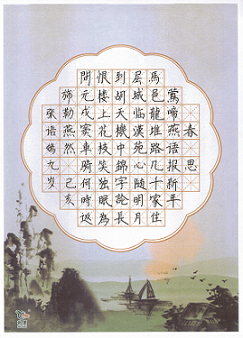 春思
鶯啼燕语报新年
馬邑龍堆路几千家住
层城临漢苑心随明月
到胡天機中錦字論長
恨楼上花枝笑独眠為
問元戎窦車騎何時返
旆勒燕然 己亥
張语嫣九岁